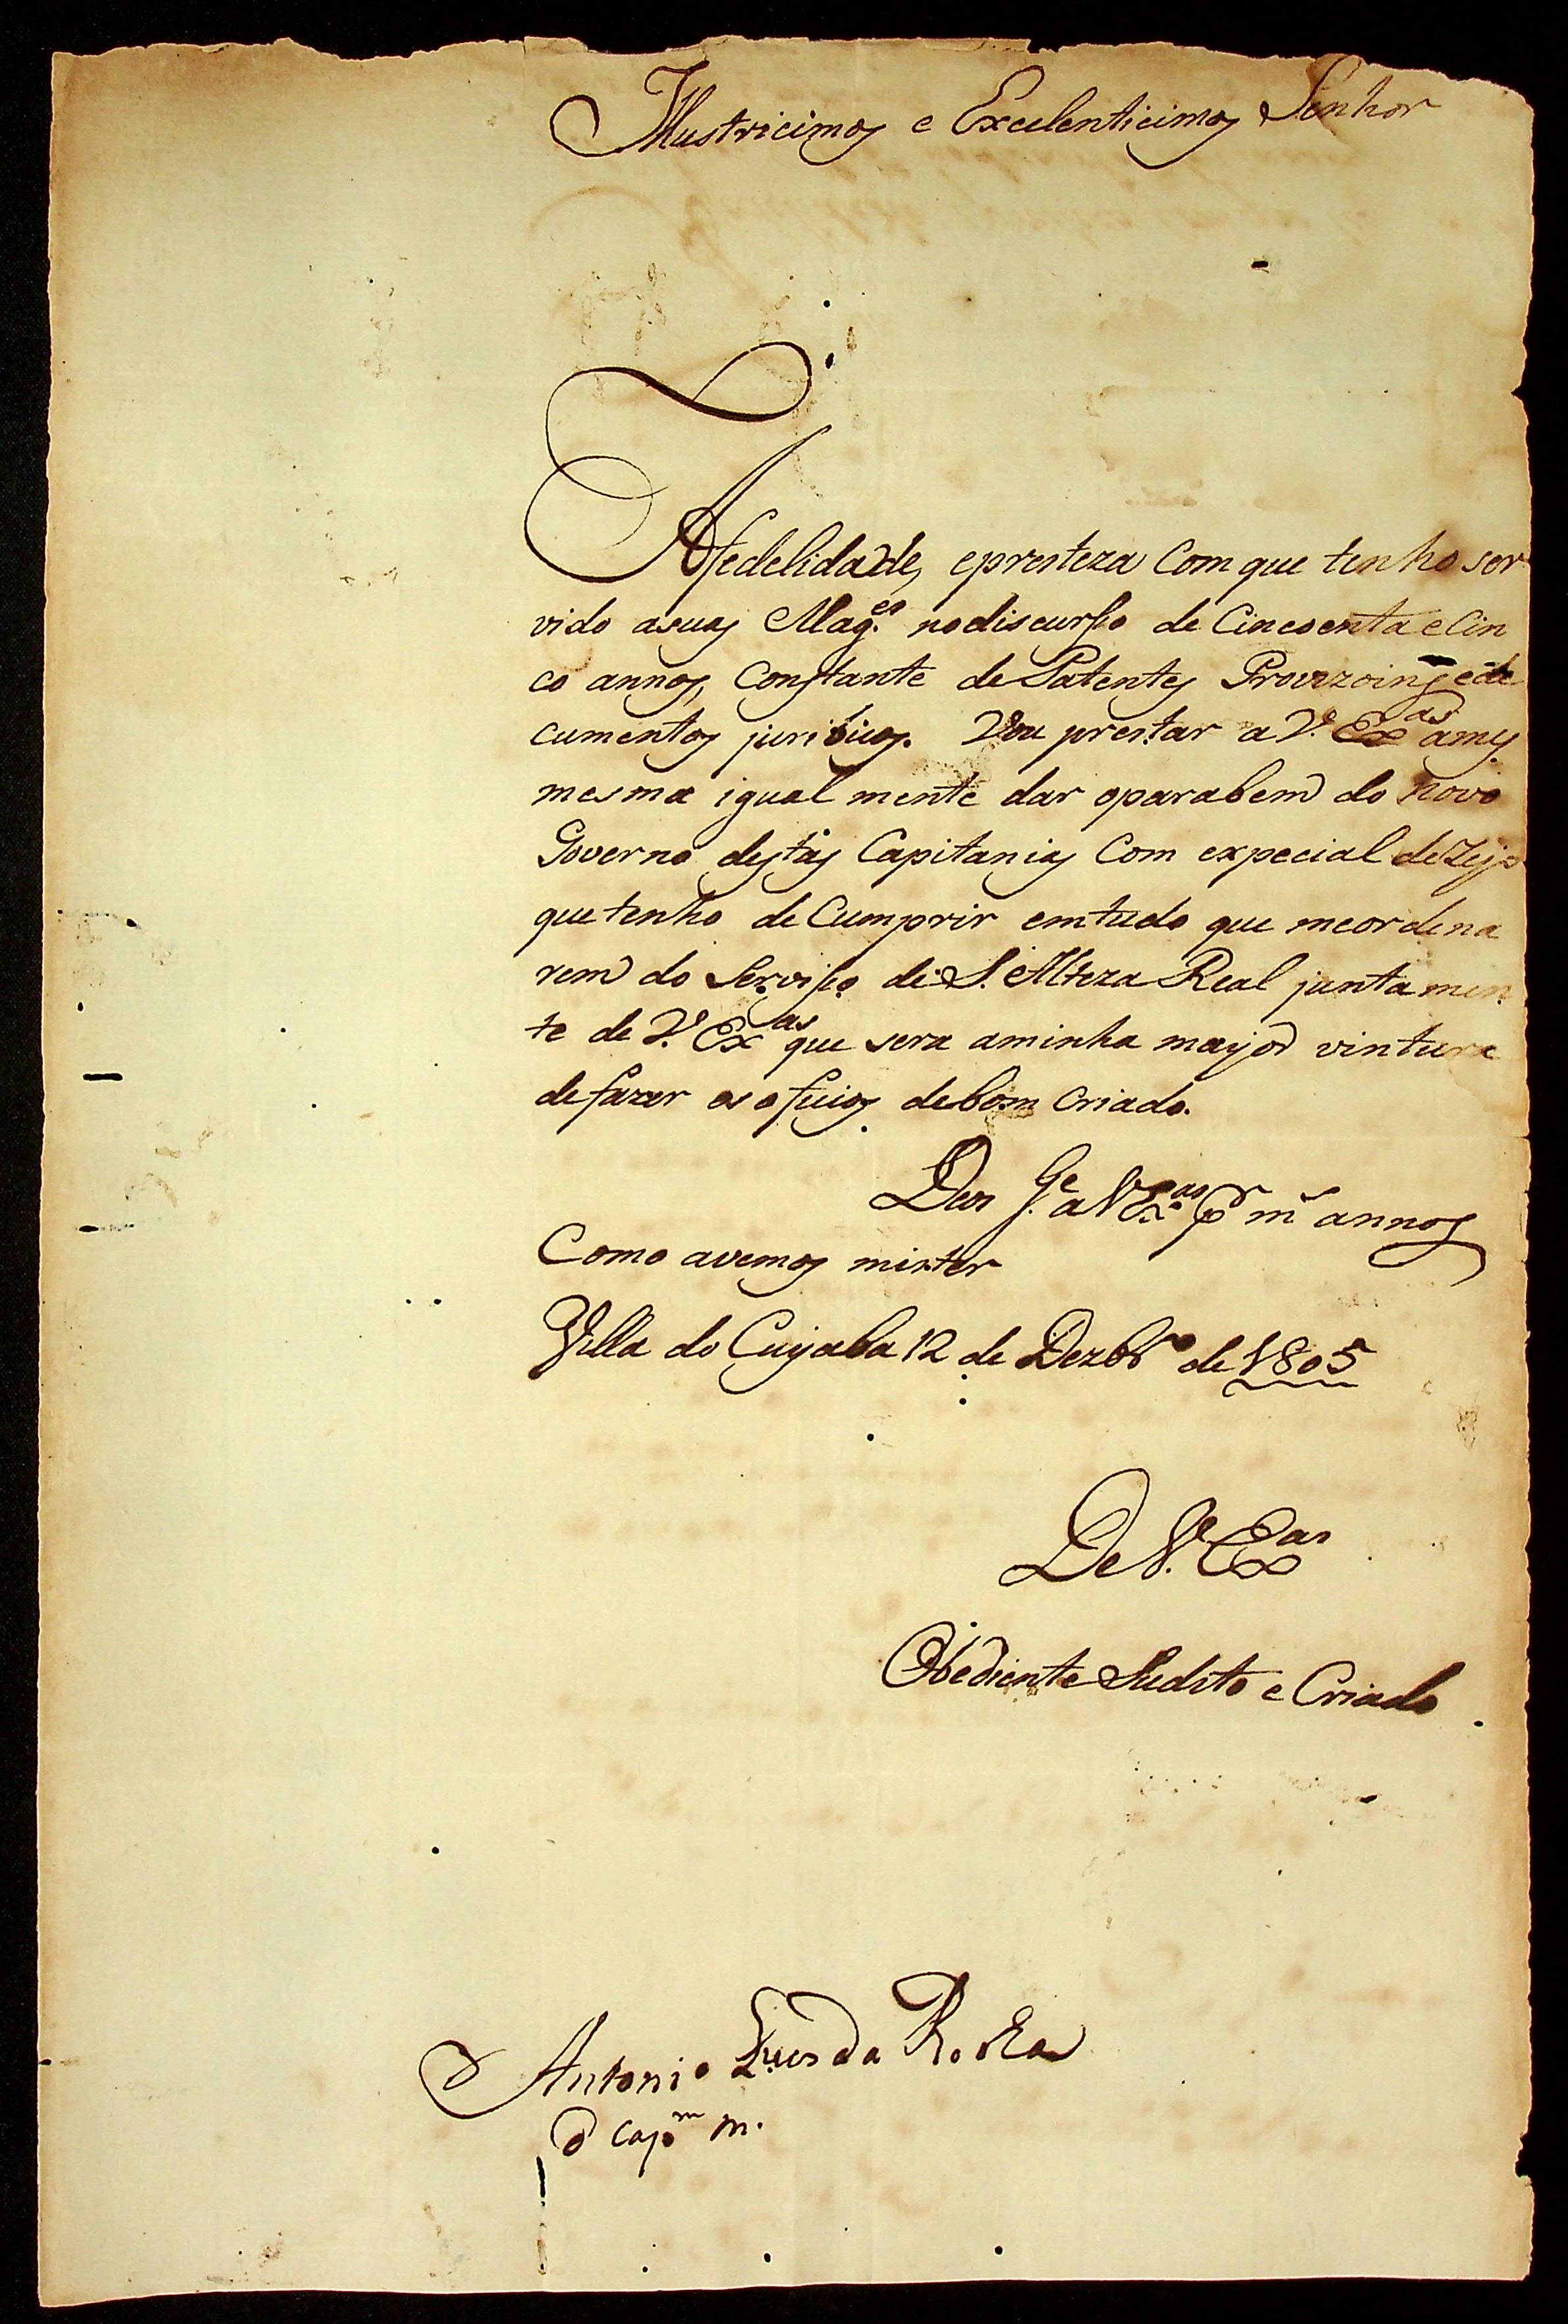 Illustricimos e Excelenticimos Senhor
A fedelidade, epresteza Com que tenho ser
vido asuas Mag.es nodiscurso de Cincoenta e Cin
co annos, Constante de Patentes Provizoins edo
cumentos juridicos. Vou prestar a V. Exas amy
mesma igual mente dar oparabem do novo
Governo destas Capitanias Com expecial dezejo
que tenho de Cumprir emtudo que meordena
rem do Serviso de S. Alteza Real juntamen
te de V. Exas que sera aminha mayor vintura
de fazer os oficios debom Criado.
Deos G.e a V Ex.as Pr ms annos
Como avemos mister
Villa do Cuyaba 12 de Dezbro de 1805
De V. Exas
Obediente Sudito e Criado
Antonio Luis da Rocha
Capm m.